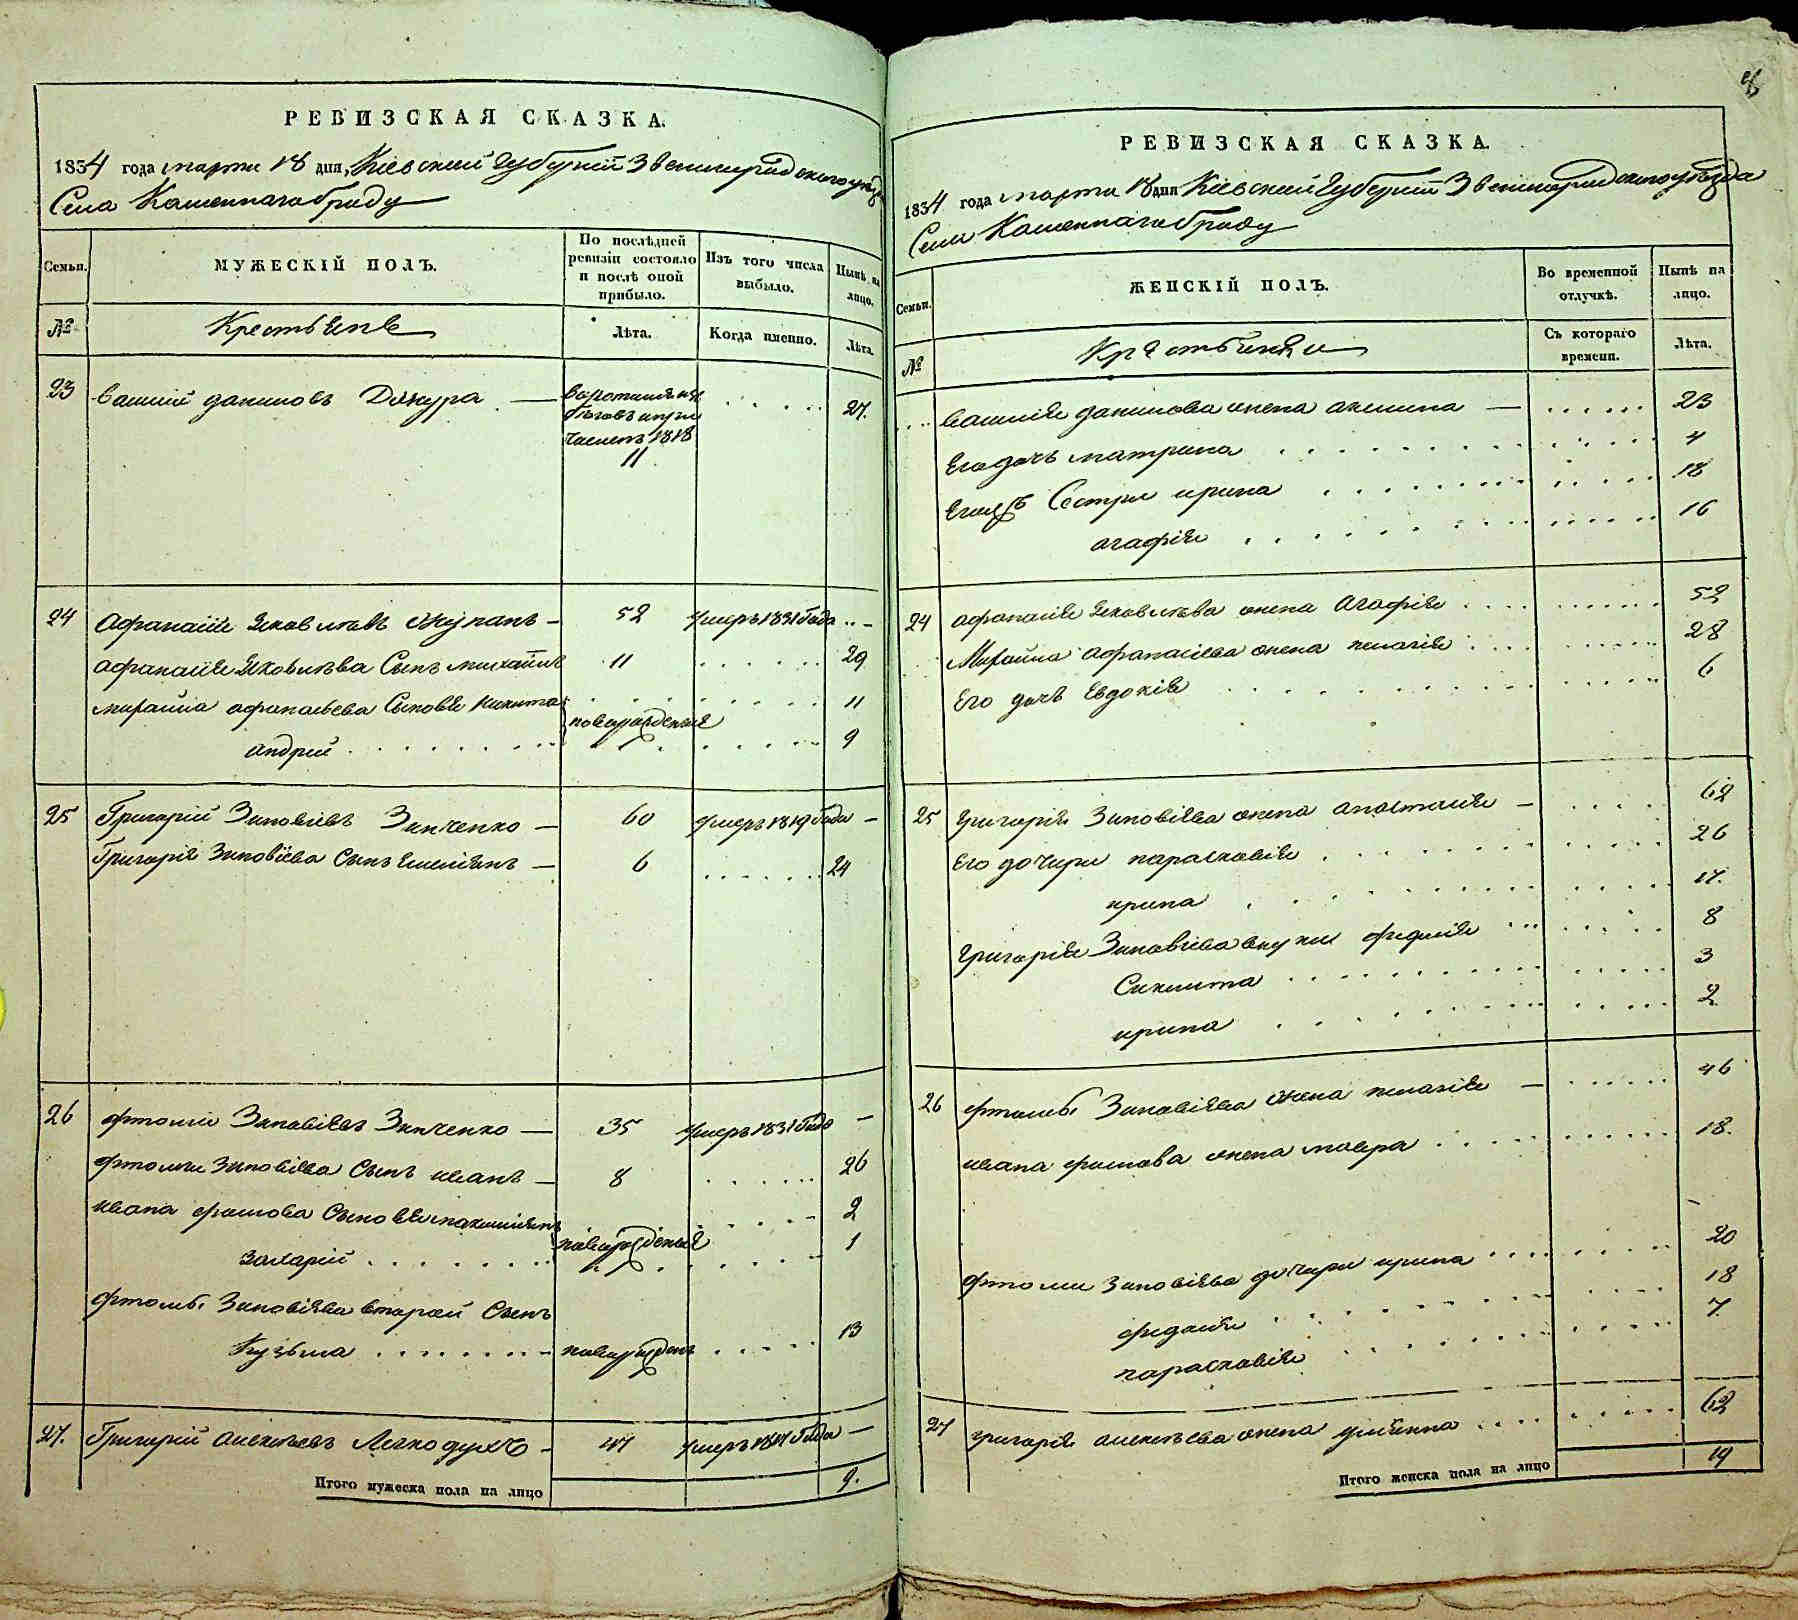 РЕВИЗСКАЯ СКАЗКА.
1834 года марта 18 дня, Кіевской Губерніи Звенигородского уезда
Села Каменнагоброду
Семьи.
МУЖЕСКІЙ ПОЛЪ.
По послѣдней ревизіи состояло и послѣ оной прибыло.
Изъ того числа выбыло.
Нынѣ на лицо.
№
Крестьяне
Лѣта.
Когда именно.
Лѣта.
23 василій даниловъ — 27.
1818
11
24 Афанасій Яковлевъ Жупанъ — 52 умеръ 1831 года
Афанасія Яковлева Сынъ михайло 11 29
михайла афанасьева Сыновья Никита 11
новорожденные
андрей 9
25 Григорій Зиновіевъ Зинченко — 60 умеръ 1819 года —
Григорія Зиновіева Сынъ Емеліянъ — 6 24
26 фтомій Зиновіевъ Зинченко — 35 умеръ 1831 года —
Зиновіева Сынъ иванъ — 8 26
ивана Сыновья 2
новорожденные
захарій 1
Зиновіева второй Сынъ
Кузьма новорожденъ 13
27. Григорій алексѣевъ Легкодухъ — умеръ года —
Итого мужеска пола на лицо 9.
РЕВИЗСКАЯ СКАЗКА.
1834 года марта 18 дня Кіевской Губерніи Звенигородского уезда
Села Каменнагоброду
Семьи.
ЖЕНСКІЙ ПОЛЪ.
Во временной отлучкѣ.
Нынѣ на лицо.
№
Крестьянки
Съ котораго времени.
Лѣта.
василія данилова жена акилина — 23
Его дочь матрина 4
Сестри ирина 18
агафія 16
24 афанасія Яковлева жена Агафія 52
Михайла афанасіева жена пелагія 28
Его дочь Евдокія 6
25 григорія Зиновіева жена анастасія — 62
Его дочери параскавія 26
ирина 17.
григорія Зиновіева внуки 8
3
ирина 2
26 Зиновіева жена пелагія — 46
ивана жена мавра 18.
Зиновіева дочери ирина 20
18
параскавія 7
27 григорія алексѣева жена улиянна 62
Итого женска пола на лицо 19